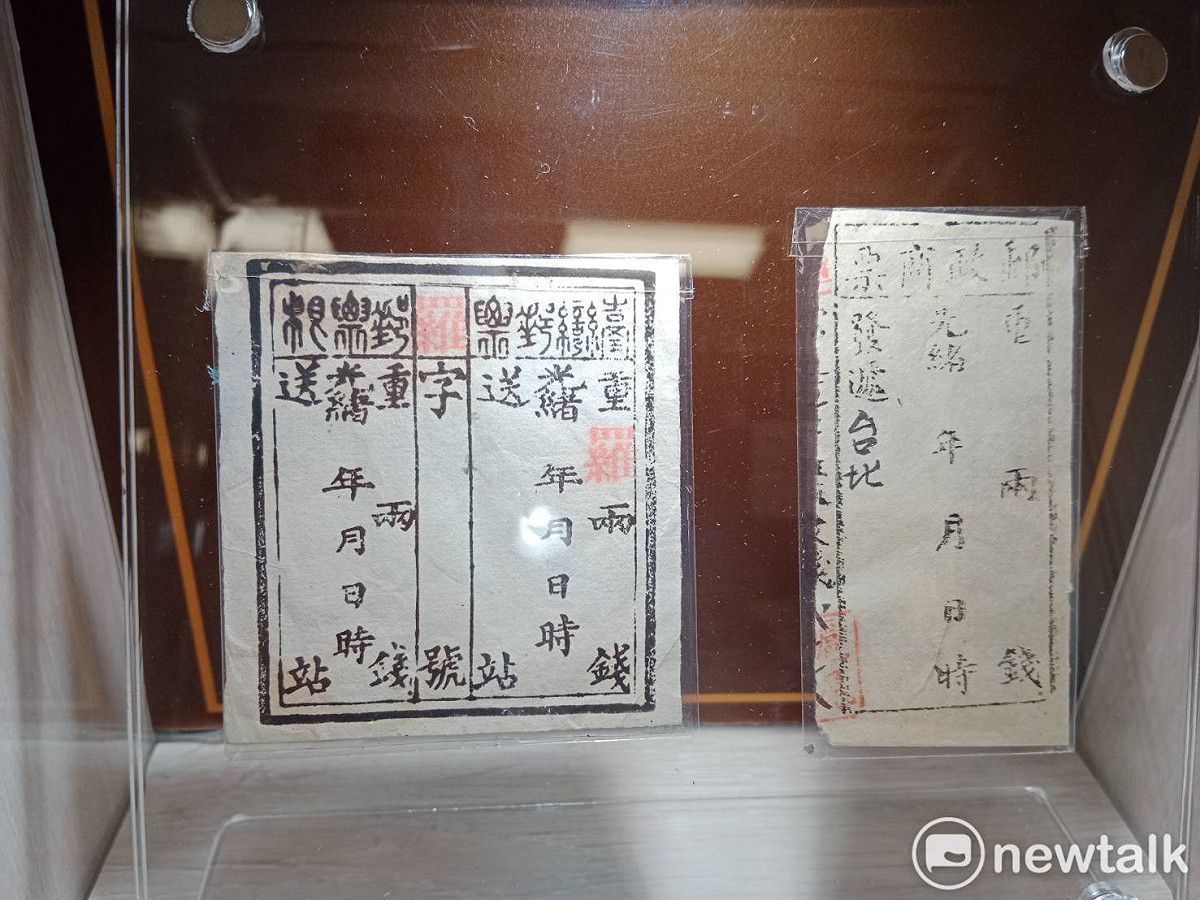 臺灣郵票
重 羅 兩 錢
光緒 年 月 日 時
送 站
羅 字 號
郵票根
重 兩 錢
光緒 年 月 日 時
送 站
郵政商票
重 兩 錢
光緒 年 月 日 時
發遞台北
newtalk